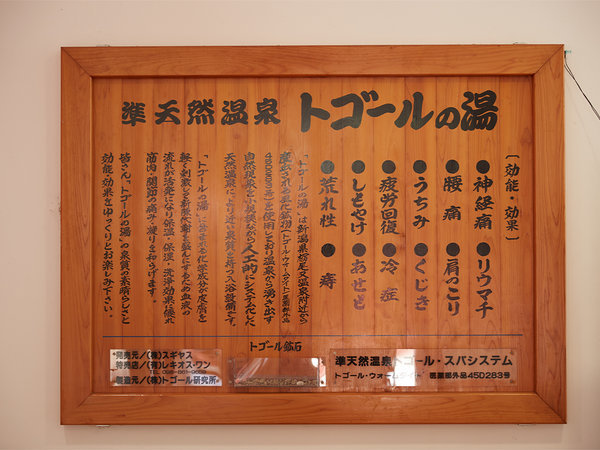 準天然温泉 トゴールの湯
〔効能・効果〕
●神経痛 ●リウマチ
●腰痛 ●肩のこり
●うちみ ●くじき
●疲労回復 ●冷症
●しもやけ ●あせも
●荒れ性 ●痔
「トゴールの湯」は新潟県栃尾又温泉附近から
産出される亜化鉱物(トゴール・ウォームタイト/医薬部外品
45D283号)を使用しており温泉から湧き出す
自然現象を小規模ながら人工的にシステム化した
天然温泉により近い泉質を持つ入浴設備です。
「トゴールの湯」に含まれる化学成分が皮膚を
軽く刺激し新陳代謝を盛んにするため血液の
流れが活発になり保温・保湿・洗浄効果に優れ
筋肉・関節の痛み・凝りを和らげます。
皆さん、「トゴールの湯」の泉質の素晴らしさと
効能・効果をゆっくりとお楽しみ下さい。
トゴール鉱石
発売元/(株)スギヤス
特売店/(有)レキオス・ワン
製造元/(株)トゴール研究所
準天然温泉トゴール・スパシステム
トゴール・ウォームタイト 医薬部外品45D283号